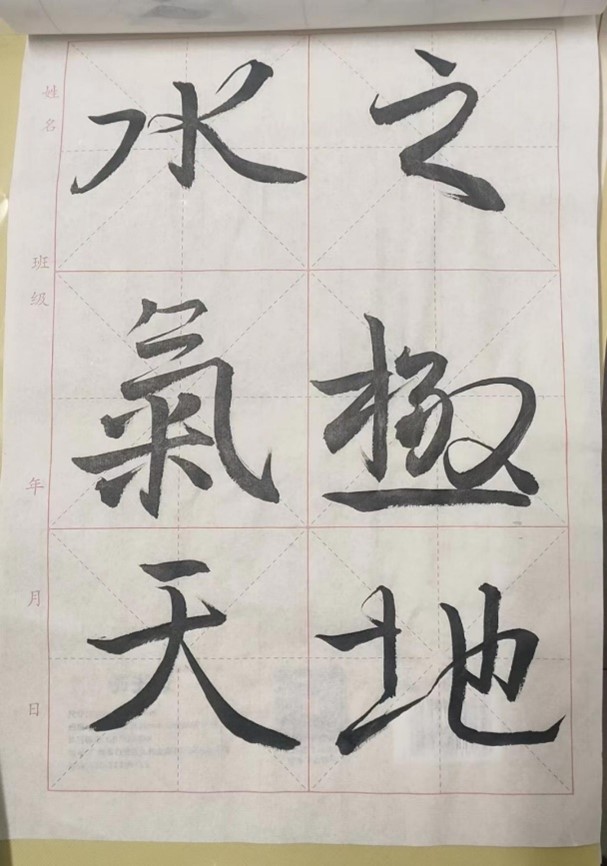 之極地
水氣天
姓名 班级 年 月 日